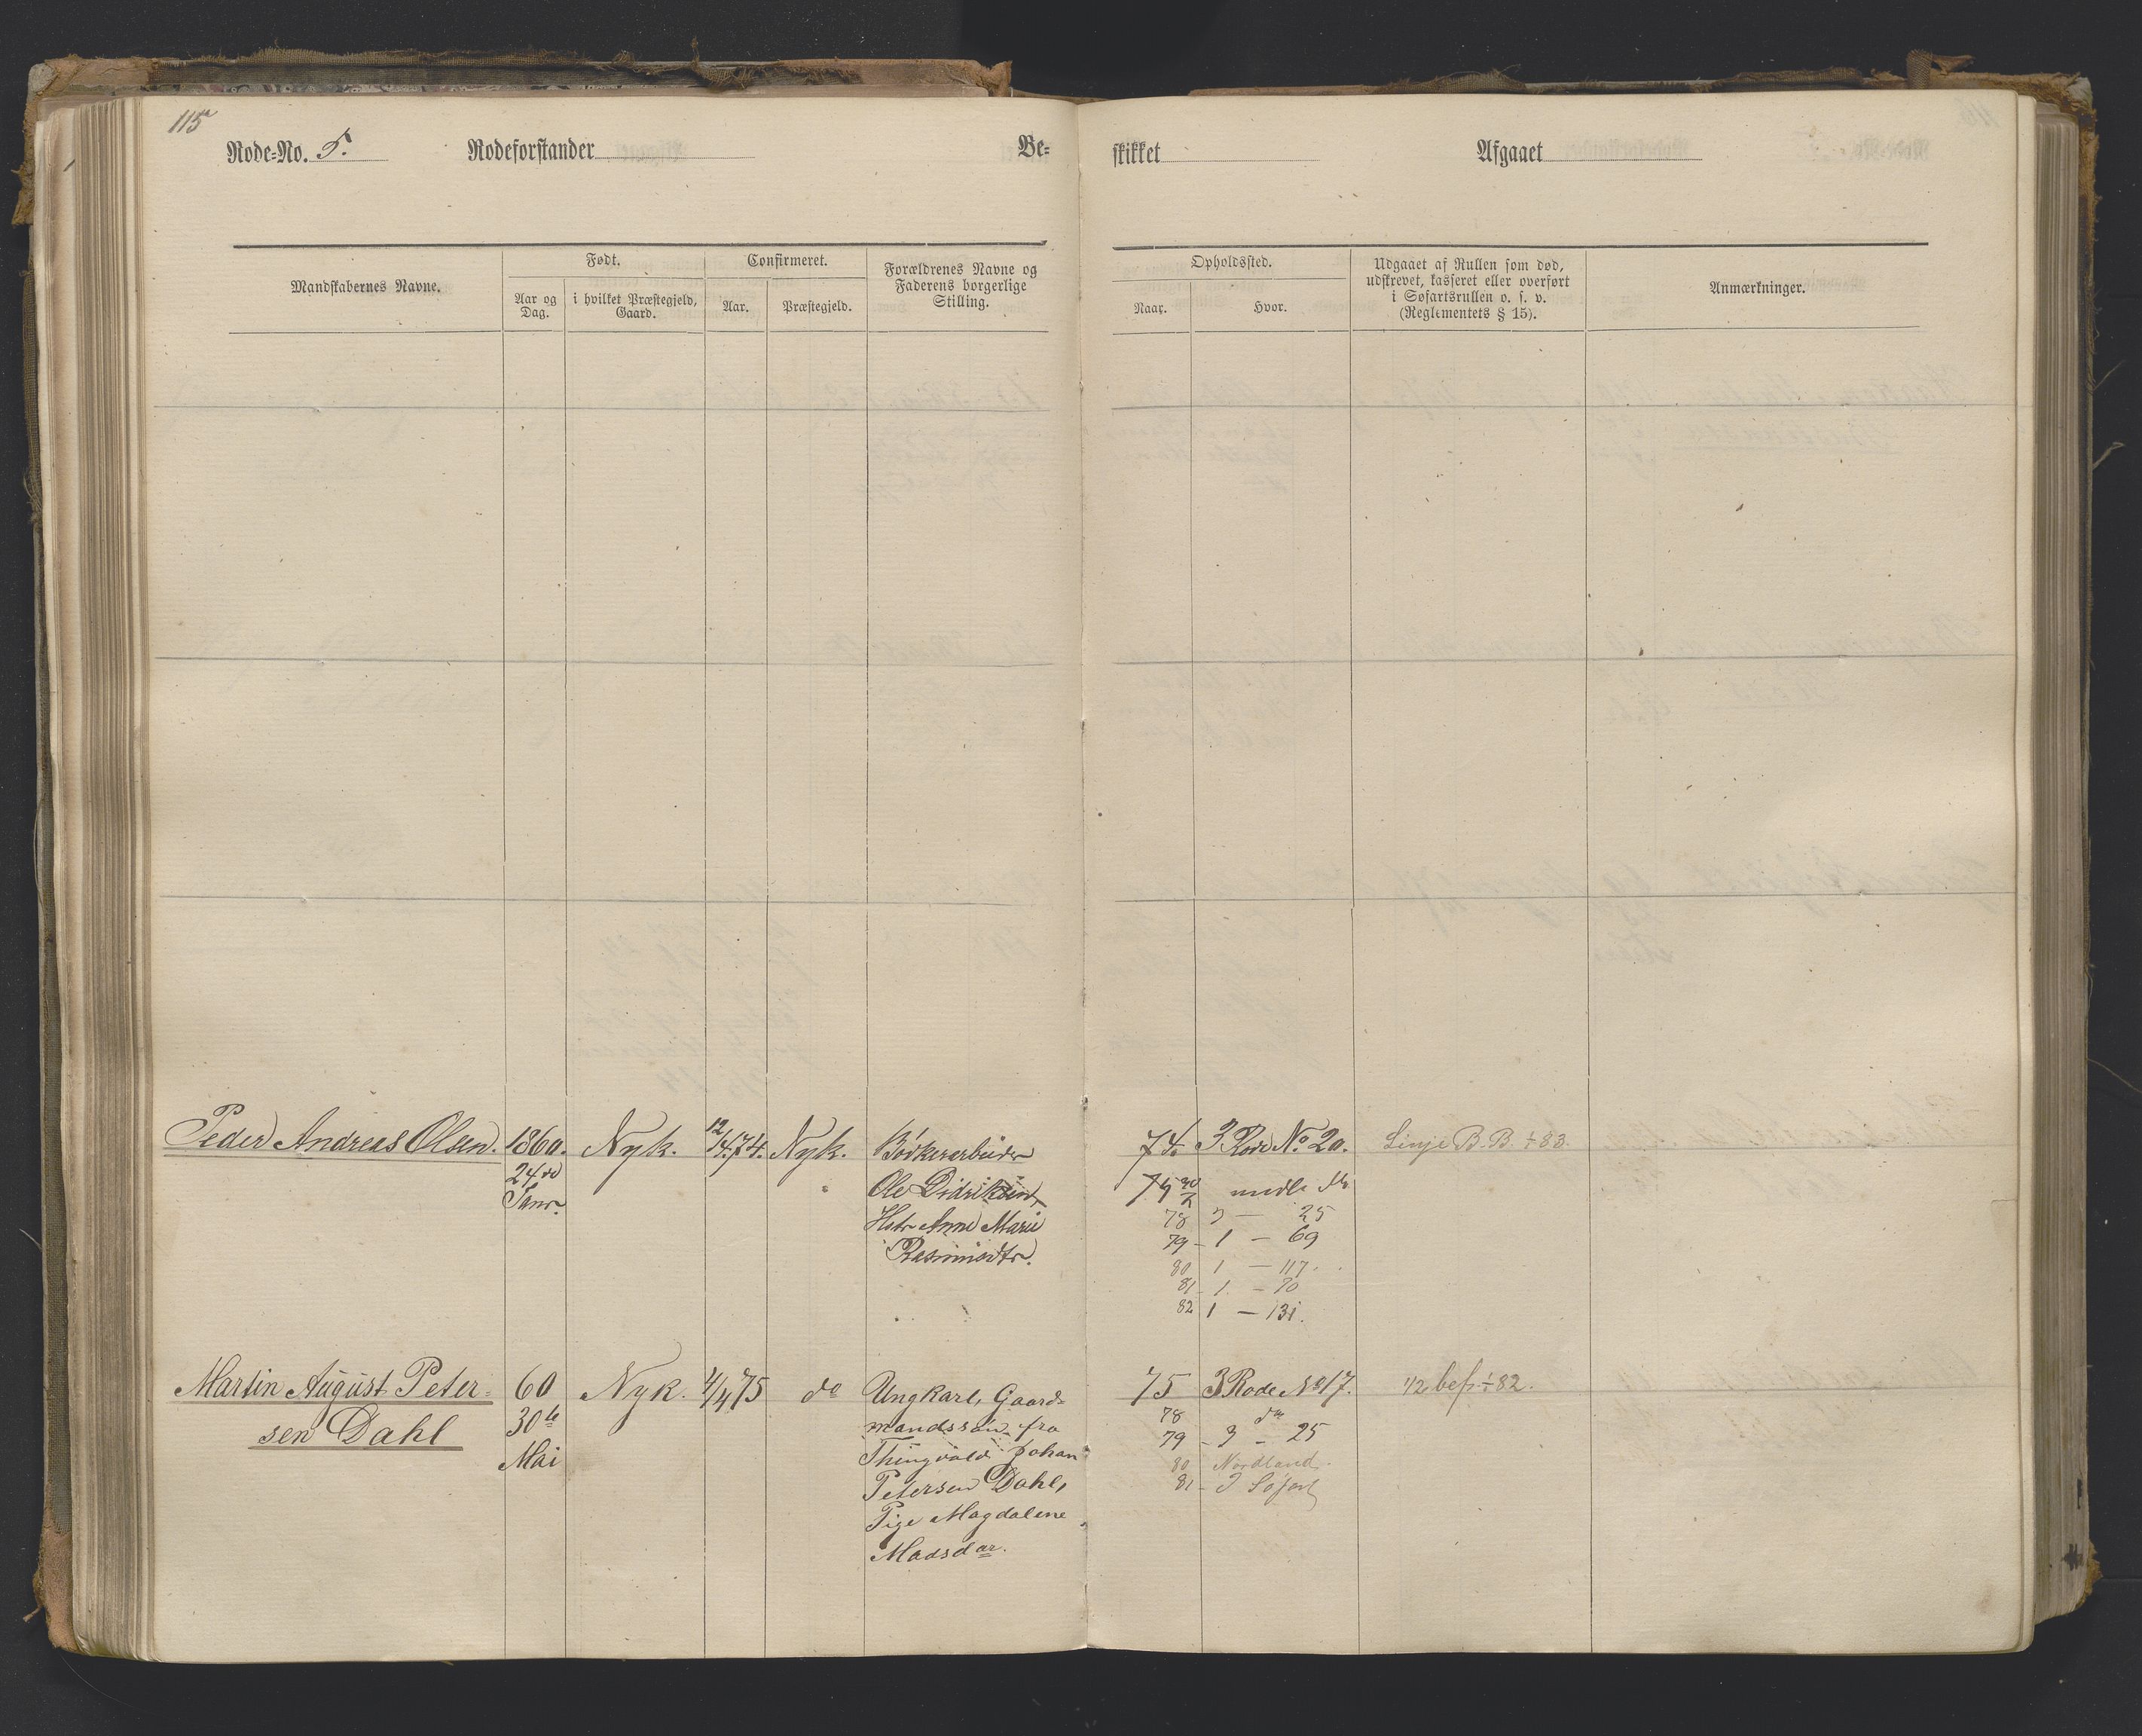 115
Rode=No. 5. Rodeforstander Be= skikket Afgaaet
Mandskabernes Navne.
Født.
Aar og Dag.
i hvilket Præstegjeld, Gaard.
Confirmeret.
Aar.
Præstegjeld.
Forældrenes Navne og
Faderens borgerlige
Stilling.
Opholdssted.
Naar.
Hvor.
Udgaaet af Rullen som død,
udskrevet, kasseret eller overført
i Søfartsrullen o. s. v.
(Reglementets § 15).
Anmærkninger.
Peder Andreas Olsen. 1860. Nyk. 12/4 74. Nyk. Bødkerarbeider 74 3 Rode No. 20. Linje B. B. ÷ 83.
24de
Janr.
Ole Didriksen,
Hstr Anne Marie
Rasmusdtr.
78 3 — 25
79 - 1 — 69
80 1 — 117.
81 - 1 — 70
82 1 — 131.
Martin August Peter= 60 Nyk. 4/4 75 do Ungkarl, Gaard= 75 3 Rode No 17. 1/2 bef. ÷ 82.
sen Dahl 30te
Mai
mandssøn fra
Thingvold Johan
Petersen Dahl,
Pige Magdalene
Madsdar.
78 do
79 - 3 - 25
80 Nordland.
81 - I Søfart